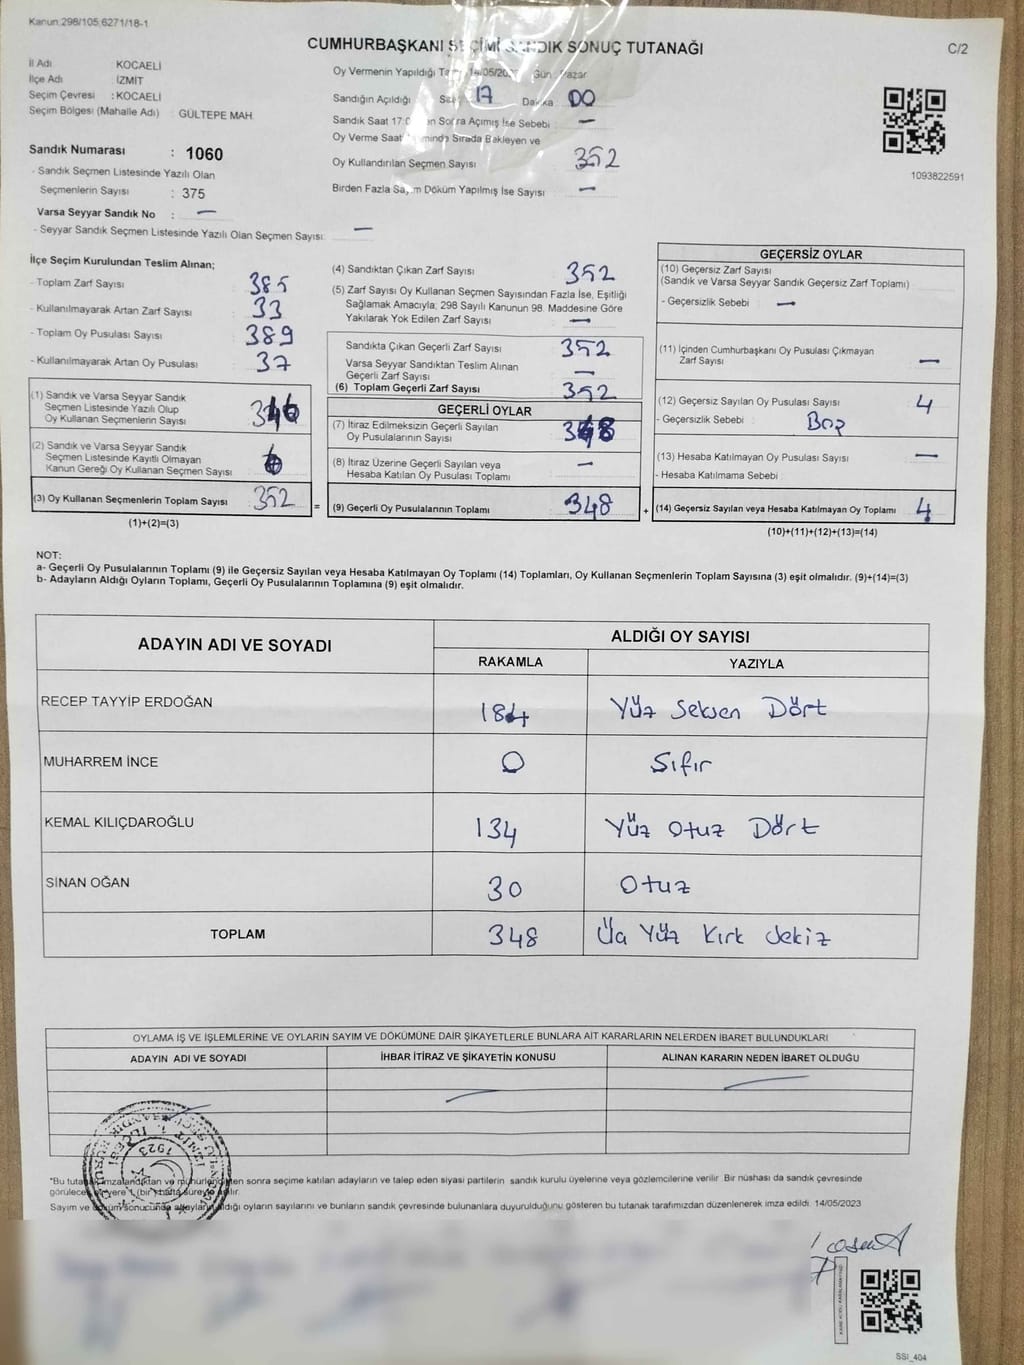 Kanun.298/105.6271/18-1
CUMHURBAŞKANI SEÇİMİ SANDIK SONUÇ TUTANAĞI
C/2
İl Adı KOCAELİ
İlçe Adı İZMİT
Seçim Çevresi : KOCAELİ
Seçim Bölgesi (Mahalle Adı) : GÜLTEPE MAH.
Sandık Numarası : 1060
- Sandık Seçmen Listesinde Yazılı Olan
Seçmenlerin Sayısı : 375
Varsa Seyyar Sandık No : —
- Seyyar Sandık Seçmen Listesinde Yazılı Olan Seçmen Sayısı: —
Oy Vermenin Yapıldığı 14/05/202 Gün : Pazar
Sandığın Açıldığı 17 Dakika 00
Sandık Saat 17:0 Sonra Açımış İse Sebebi : —
Oy Verme Saat Sırada Bekleyen ve
Oy Kullandırılan Seçmen Sayısı 352
Birden Fazla Sayım Döküm Yapılmış İse Sayısı —
1093822591
İlçe Seçim Kurulundan Teslim Alınan;
- Toplam Zarf Sayısı 385
- Kullanılmayarak Artan Zarf Sayısı 33
- Toplam Oy Pusulası Sayısı 389
- Kullanılmayarak Artan Oy Pusulası 37
(1) Sandık ve Varsa Seyyar Sandık
Seçmen Listesinde Yazılı Olup
Oy Kullanan Seçmenlerin Sayısı 346
(2) Sandık ve Varsa Seyyar Sandık
Seçmen Listesinde Kayıtlı Olmayan
Kanun Gereği Oy Kullanan Seçmen Sayısı 6
(3) Oy Kullanan Seçmenlerin Toplam Sayısı 352 =
(1)+(2)=(3)
(4) Sandıktan Çıkan Zarf Sayısı 352
(5) Zarf Sayısı Oy Kullanan Seçmen Sayısından Fazla İse, Eşitliği
Sağlamak Amacıyla; 298 Sayılı Kanunun 98. Maddesine Göre
Yakılarak Yok Edilen Zarf Sayısı —
Sandıkta Çıkan Geçerli Zarf Sayısı 352
Varsa Seyyar Sandıktan Teslim Alınan
Geçerli Zarf Sayısı —
(6) Toplam Geçerli Zarf Sayısı 352
GEÇERLİ OYLAR
(7) İtiraz Edilmeksizin Geçerli Sayılan
Oy Pusulalarının Sayısı 348
(8) İtiraz Üzerine Geçerli Sayılan veya
Hesaba Katılan Oy Pusulası Toplamı —
(9) Geçerli Oy Pusulalarının Toplamı 348 +
GEÇERSİZ OYLAR
(10) Geçersiz Zarf Sayısı
(Sandık ve Varsa Seyyar Sandık Geçersiz Zarf Toplamı)
- Geçersizlik Sebebi —
(11) İçinden Cumhurbaşkanı Oy Pusulası Çıkmayan
Zarf Sayısı —
(12) Geçersiz Sayılan Oy Pusulası Sayısı 4
- Geçersizlik Sebebi Boş
(13) Hesaba Katılmayan Oy Pusulası Sayısı —
- Hesaba Katılmama Sebebi
(14) Geçersiz Sayılan veya Hesaba Katılmayan Oy Toplamı 4
(10)+(11)+(12)+(13)=(14)
NOT:
a- Geçerli Oy Pusulalarının Toplamı (9) ile Geçersiz Sayılan veya Hesaba Katılmayan Oy Toplamı (14) Toplamları, Oy Kullanan Seçmenlerin Toplam Sayısına (3) eşit olmalıdır. (9)+(14)=(3)
b- Adayların Aldığı Oyların Toplamı, Geçerli Oy Pusulalarının Toplamına (9) eşit olmalıdır.
ADAYIN ADI VE SOYADI ALDIĞI OY SAYISI
RAKAMLA YAZIYLA
RECEP TAYYİP ERDOĞAN 184 Yüz Seksen Dört
MUHARREM İNCE 0 Sıfır
KEMAL KILIÇDAROĞLU 134 Yüz Otuz Dört
SİNAN OĞAN 30 Otuz
TOPLAM 348 Üç Yüz Kırk Sekiz
OYLAMA İŞ VE İŞLEMLERİNE VE OYLARIN SAYIM VE DÖKÜMÜNE DAİR ŞİKAYETLERLE BUNLARA AİT KARARLARIN NELERDEN İBARET BULUNDUKLARI
ADAYIN ADI VE SOYADI İHBAR İTİRAZ VE ŞİKAYETİN KONUSU ALINAN KARARIN NEDEN İBARET OLDUĞU
1923
*Bu tutanak imzalandıktan ve mühürlendikten sonra seçime katılan adayların ve talep eden siyasi partilerin sandık kurulu üyelerine veya gözlemcilerine verilir. Bir nüshası da sandık çevresinde
görülecek yere 1 (bir) hafta süreyle asılır.
Sayım ve döküm sonucunda adayların aldığı oyların sayılarını ve bunların sandık çevresinde bulunanlara duyurulduğunu gösteren bu tutanak tarafımızdan düzenlenerek imza edildi. 14/05/2023
SSI_404